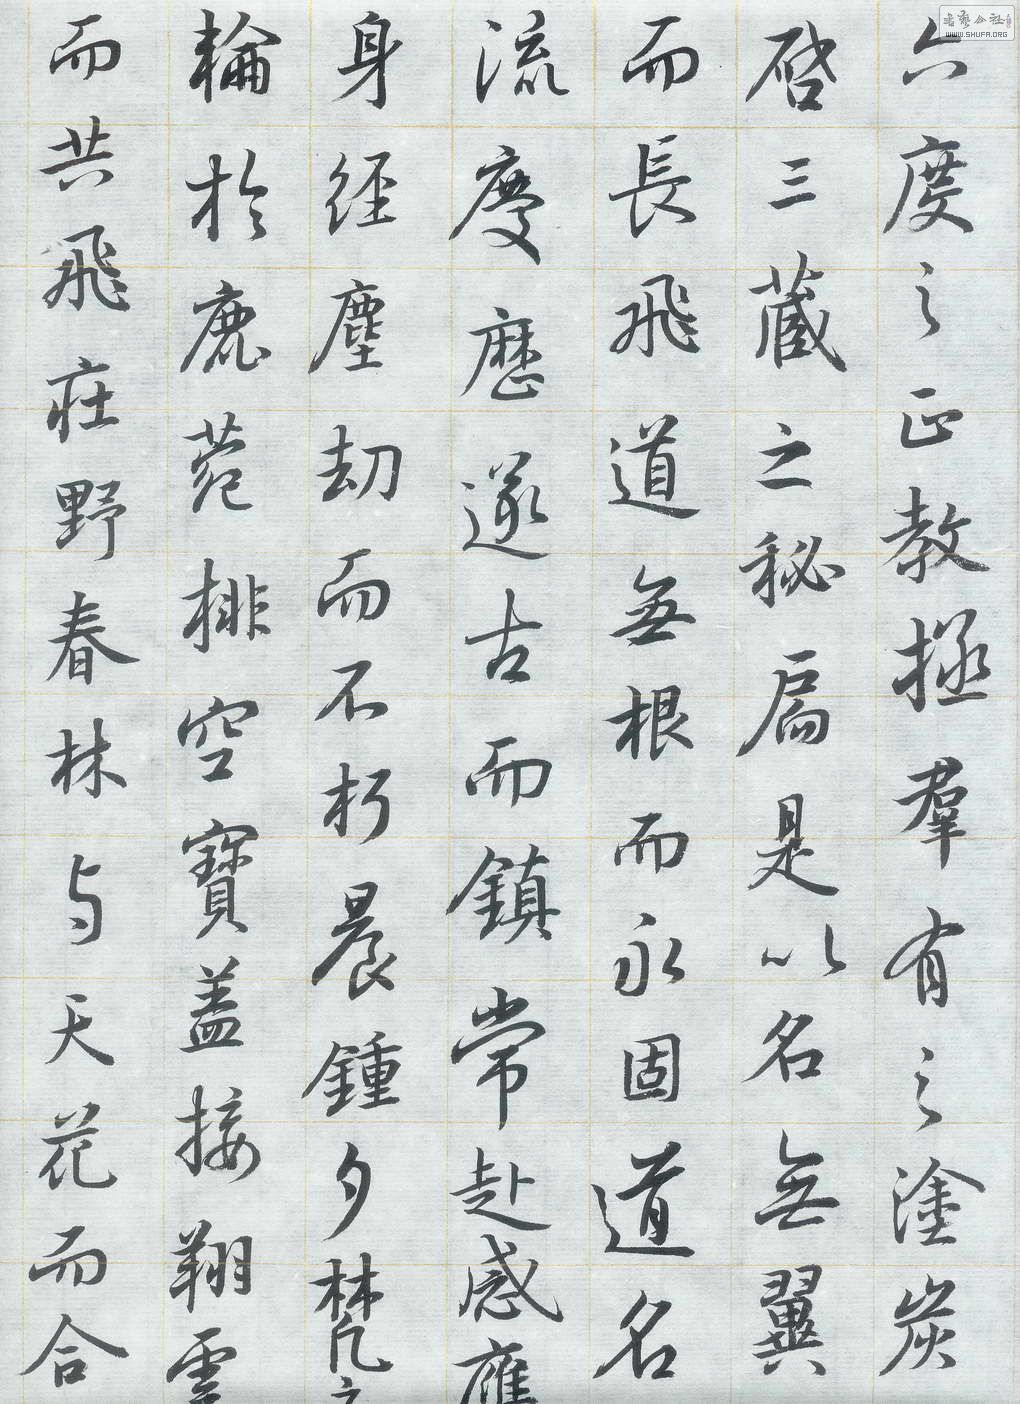 六度之正教拯羣有之塗炭
啓三藏之秘扃是以名無翼
而長飛道無根而永固道名
流慶歷遂古而鎮常赴感應
身經塵劫而不朽晨鍾夕梵
輪於鹿菀排空寶蓋接翔雲
而共飛莊野春林与天花而合
书艺公社
WWW.SHUFA.ORG